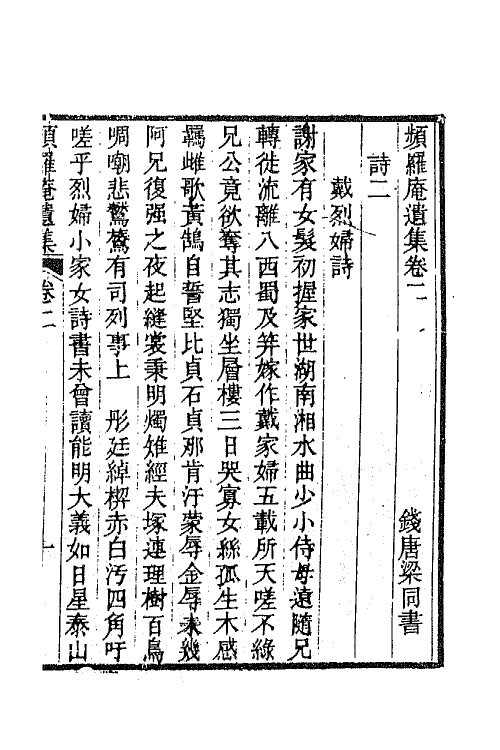 頻羅庵遺集卷二
錢唐梁同書
詩二
戴烈婦詩
謝家有女髮初握家世湖南湘水曲少小侍母遠隨兄
轉徙流離入西蜀及笄嫁作戴家婦五載所天嗟不綠
兄公竟欲奪其志獨坐層樓三日哭寡女絲孤生木感
羈雌歌黃鵠自誓堅比貞石貞那肯汙蒙辱金辱未幾
阿兄復强之夜起縫裳秉明燭雉經夫塚連理樹百鳥
啁嘲悲鷲鷟有司列事上 彤廷綽楔赤白汚四角吁
嗟乎烈婦小家女詩書未曾讀能明大義如日星泰山
頻羅庵遺集 卷二 一